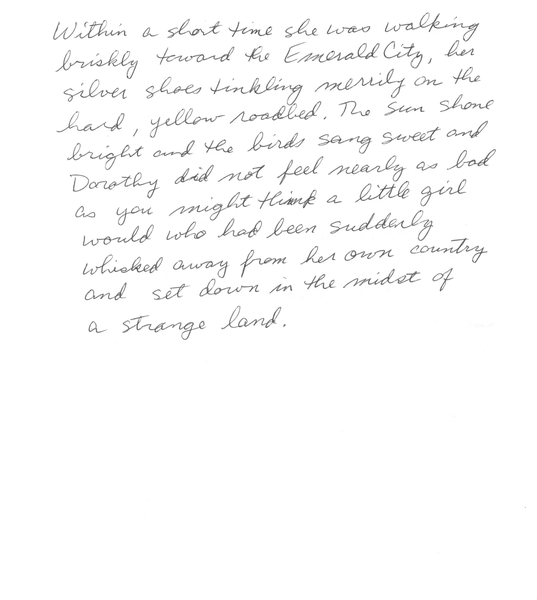 Within a short time she was walking
briskly toward the Emerald City, her
silver shoes tinkling merrily on the
hard, yellow roadbed. The sun shone
bright and the birds sang sweet and
Dorothy did not feel nearly as bad
as you might think a little girl
would who had been suddenly
whisked away from her own country
and set down in the midst of
a strange land.